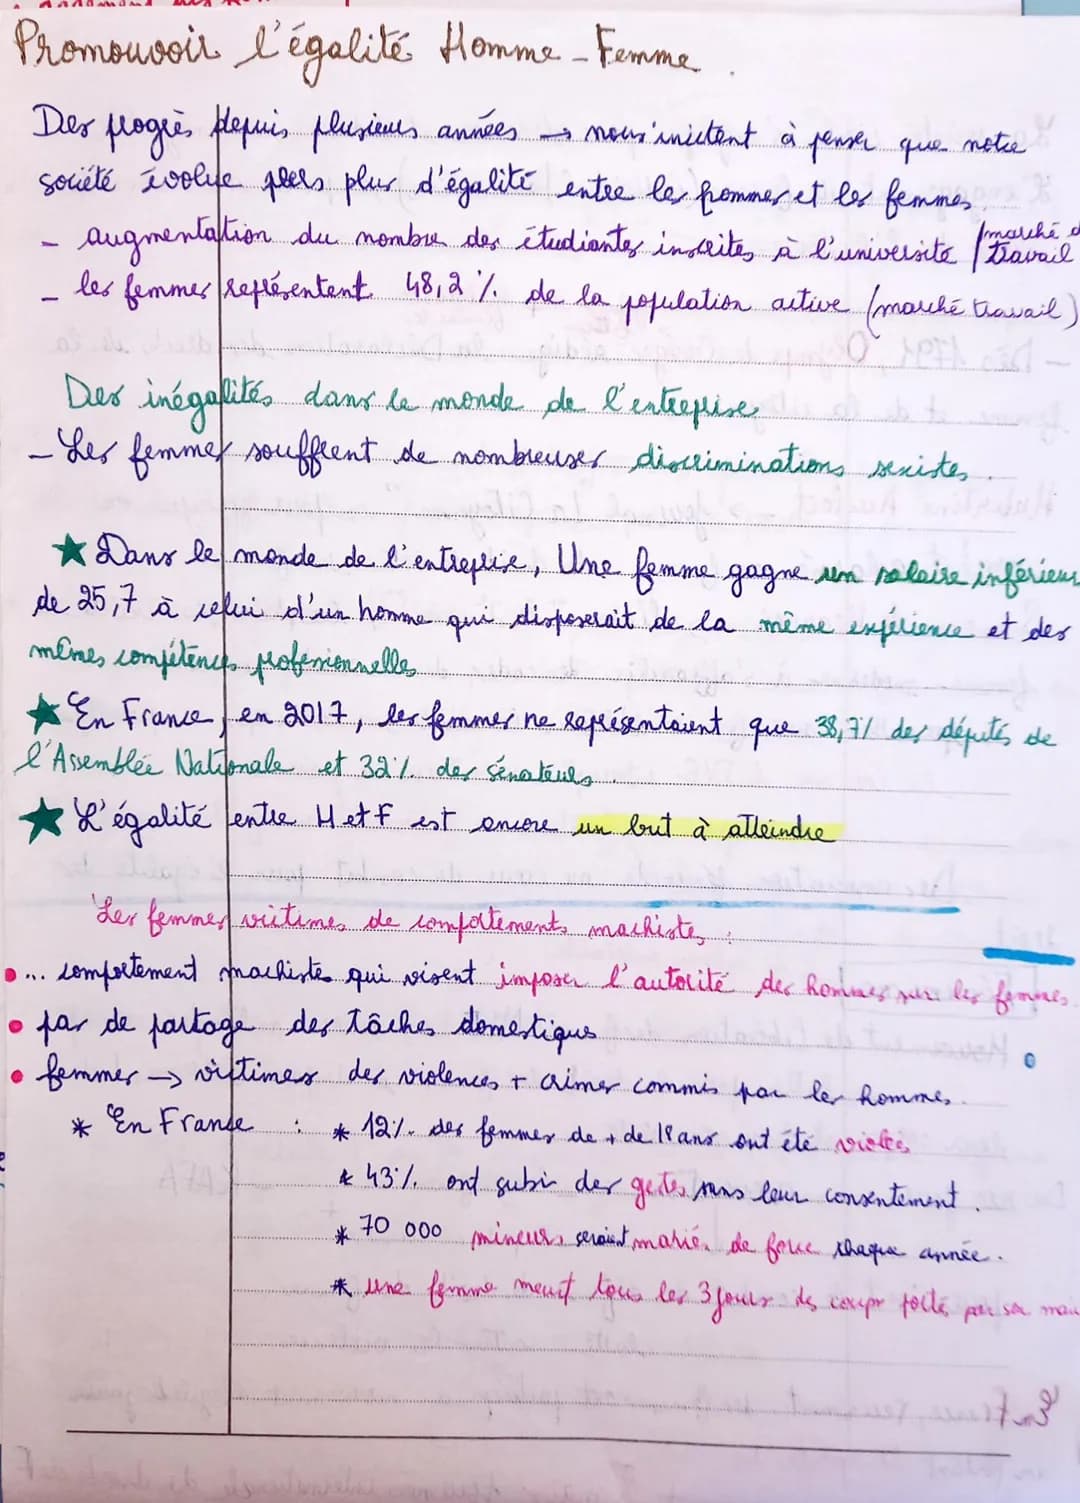 Promouvoir l'égalité Homme - Femme.
Des progrès depuis plusieurs années → nous incitent à penser que notre
société évolue vers plus d'égalité entre les hommes et les femmes
- augmentation du nombre des étudiantes inscrites à l'université / marché
travail
- les femmes représentent 48,2 % de la population active (marché travail)
Des inégalités dans le monde de l'entreprise
- Les femmes souffrent de nombreuses discriminations sexistes.
★ Dans le monde de l'entreprise, Une femme gagne un salaire inférieur
de 25,7 à celui d'un homme qui disposerait de la même expérience et des
mêmes compétences professionnelles
★ En France, en 2017, les femmes ne représentaient que 38,7% des députés de
l'Assemblée Nationale et 32% des sénateurs.
★ L'égalité entre H et F est encore un but à atteindre
Les femmes victimes de comportements machistes :
• ... comportement machiste qui visent imposer l'autorité des hommes sur les femmes.
• pas de partage des tâches domestiques
• femmes → victimes des violences + crimes commis par les hommes.
* En France : * 12% des femmes de + de 18 ans ont été violés
* 43% ont subir des gestes sans leur consentement.
* 70 000 mineurs seraient mariés de force chaque année.
* une femme meurt tous les 3 jours des coups portés par son